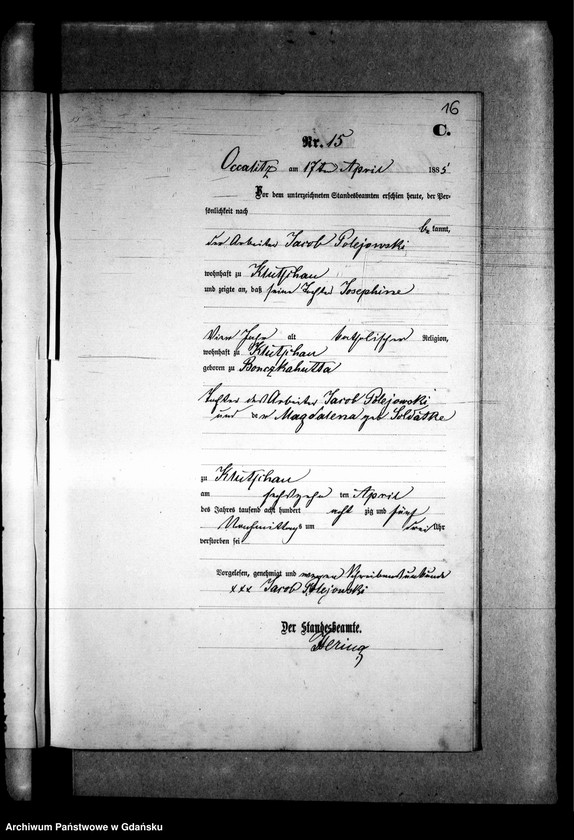 16
C.
Nr. 15
Occalitz am 17ten April 1885
Vor dem unterzeichneten Standesbeamten erschien heute, der Per-
sönlichkeit nach
be kannt,
der Arbeiter Jacob Polejowski
wohnhaft zu Klutschau
und zeigte an, daß seine Tochter Josephine
Vier Jahr alt katholischer Religion,
wohnhaft zu Klutschau
geboren zu Bonczkahutta
Tochter des Arbeiter Jacob Polejowski
und Magdalena geb Soldatke
zu Klutschau
am sechszehn ten April
des Jahres tausend acht hundert acht zig und fünf
Nachmittags um drei Uhr
verstorben sei
Vorgelesen, genehmigt und wegen Schreibensunkunde
xxx Jacob Polejowski
Der Standesbeamte.
Hering
Archiwum Państwowe w Gdańsku